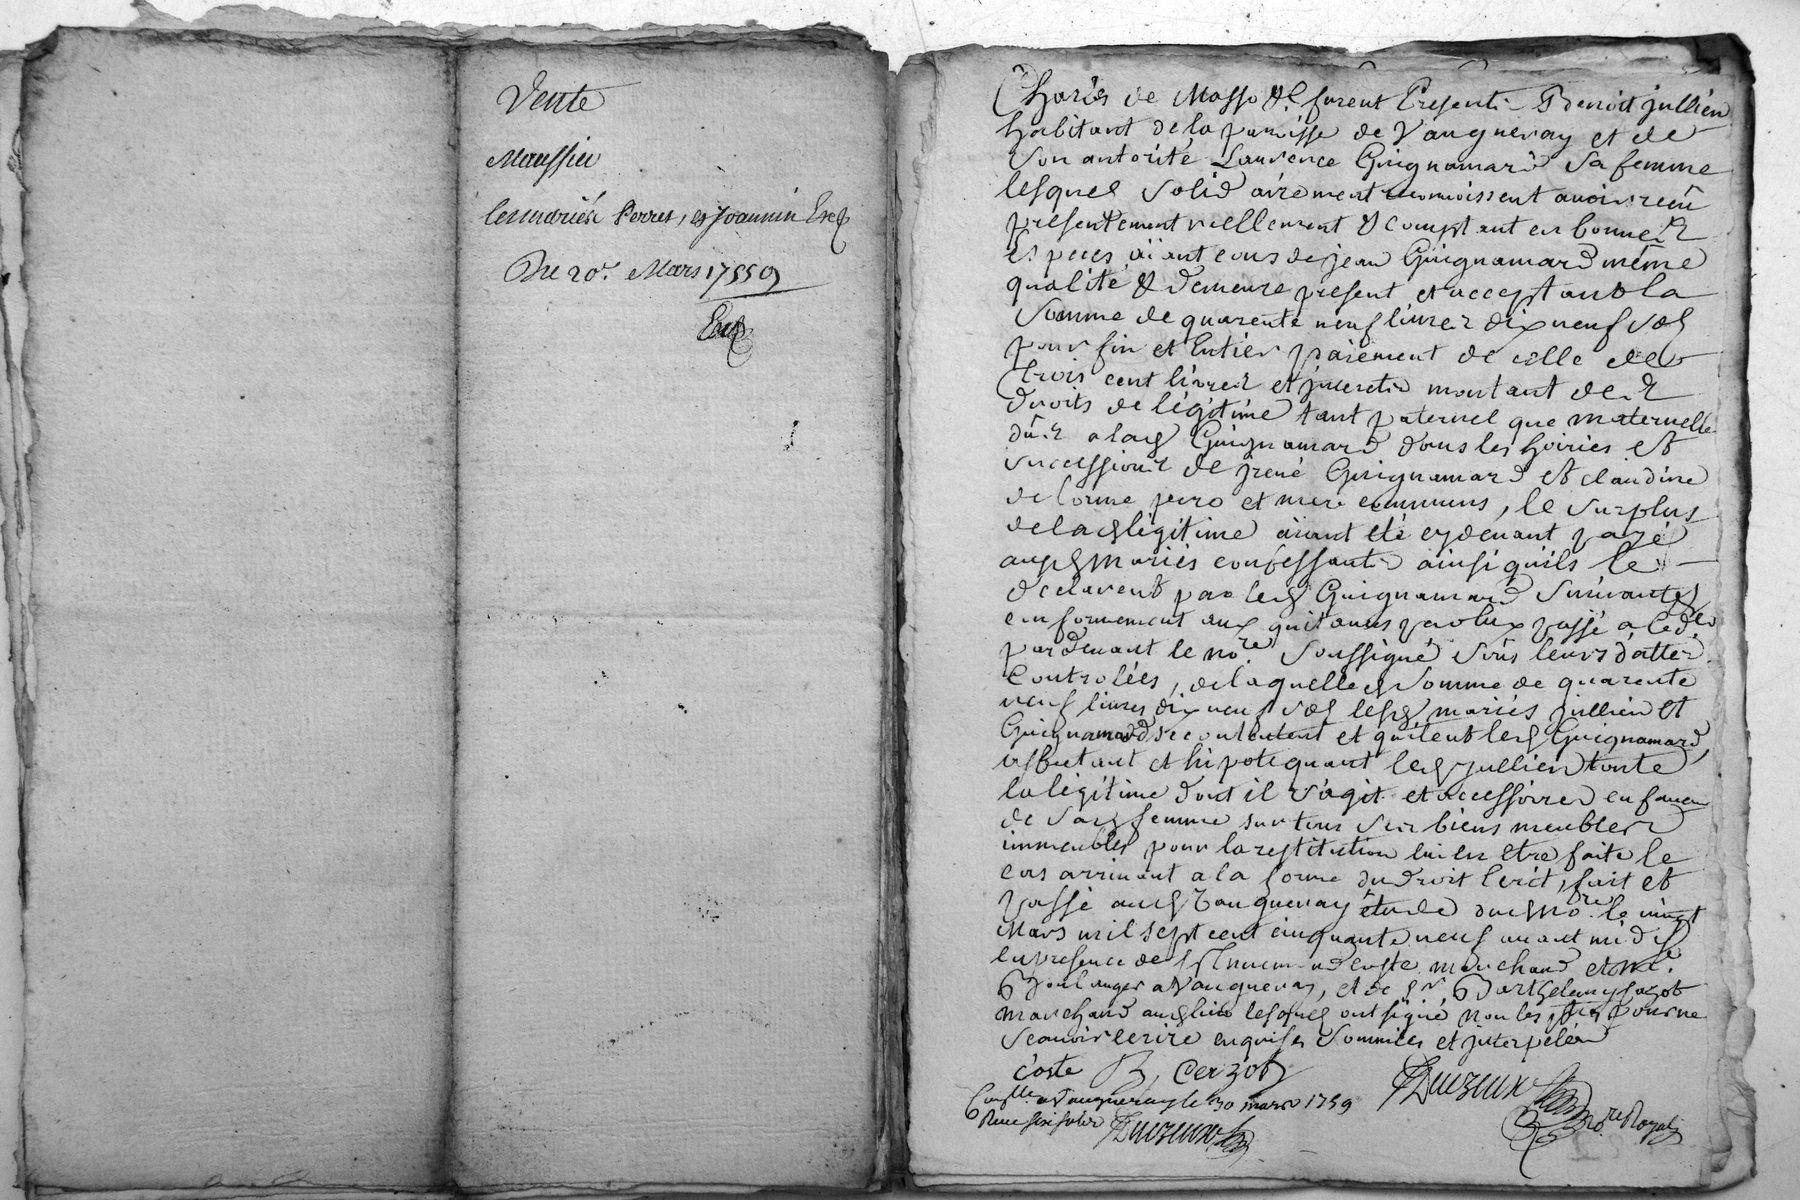 Vente
Maussier
les mariés Perret, et Joannin Exp
Du 20e. Mars 1759
Exp
de Masso &c furent Presents Benoit jullien
habitant de la paroisse de Vaugneray et de
son autorité Laurence Guignamard sa femme
lesquels solidairement reconnoissent avoir reçû
presentement reellement & comptant en bonnes
especes aiant cours de jean Guignamard même
qualité & demeure present et acceptant la
somme de quarente neuf livres dix neuf sols
pour fin et Entier paiement de celle de
trois cent livres et interets montant des
droits de légitime tant paternel que maternelle
dûs a lad Guignamard dans les hoiries et
successions de jrené Guignamard et claudine
de lorme pere et mere communs, le surplus
de lad légitime aiant eté cydevant payé
auxd mariés confessants ainsi quils le
declarent par led Guignamard suivant et
conformement aux quitances passé
pardevant le nore. soussigné sous leurs dattes
Controlées, de laquelle somme de quarente
neuf livres dix neuf sols lesd mariés jullien et
Guignamard se contentent et quitent led Guignamard,
assurant et hipotequant led jullien toute
la légitime dont il s'agit et accessoires en faveur
de sad femme sur tous ses biens meubles
immeubles pour la restitution lui en etre faite le
cas arrivant a la forme du droit Ecrit, fait et
passé aud Vaugneray étude dud Nore le vingt
Mars mil sept cent cinquante neuf avant midi
en presence de coste marchand et me.
Boulanger a Vaugneray, et de sr. Barthelemy
marchand aud lieu lesquels ont signé non les pties pour ne
scavoir ecrire enquises sommées et interpelées
Coste B, Cerzot Duezeux
Conllé a Vaugneray le 30 mars 1759 nore Royal
Reçu six sols Duezeux